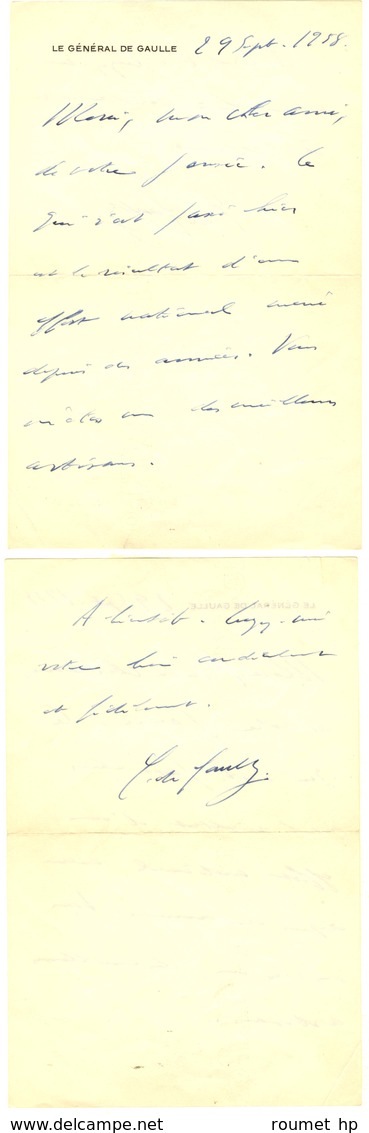 LE GÉNÉRAL DE GAULLE 29 Sept. 1958.
Merci, mon cher ami,
de votre pensée. Ce
qui s'est passé hier
est le résultat d'un
effort national mené
depuis des années. Vous
en êtes un des meilleurs
artisans.
A bientôt. Croyez-moi
votre bien cordialement
et fidèlement.
C. de Gaulle.
www.delcampe.net
roumet hp